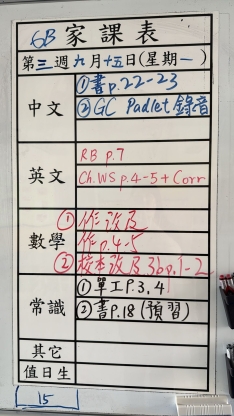 6B 家課表
第三週九月十五日(星期一)
中文
①書p.22-23
②GC Padlet 錄音
英文
RB p.7
Ch.WS p.4-5 + Corr
數學
①作改及
作p.4-5
②校本改及3bp.1-2
常識
①單工P.3,4
②書P.18(預習)
其它
值日生
15